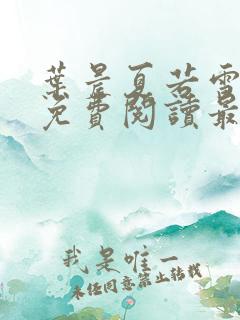 葉晨夏若雪
免費閱讀最
我是唯一
未經同意禁止轉載